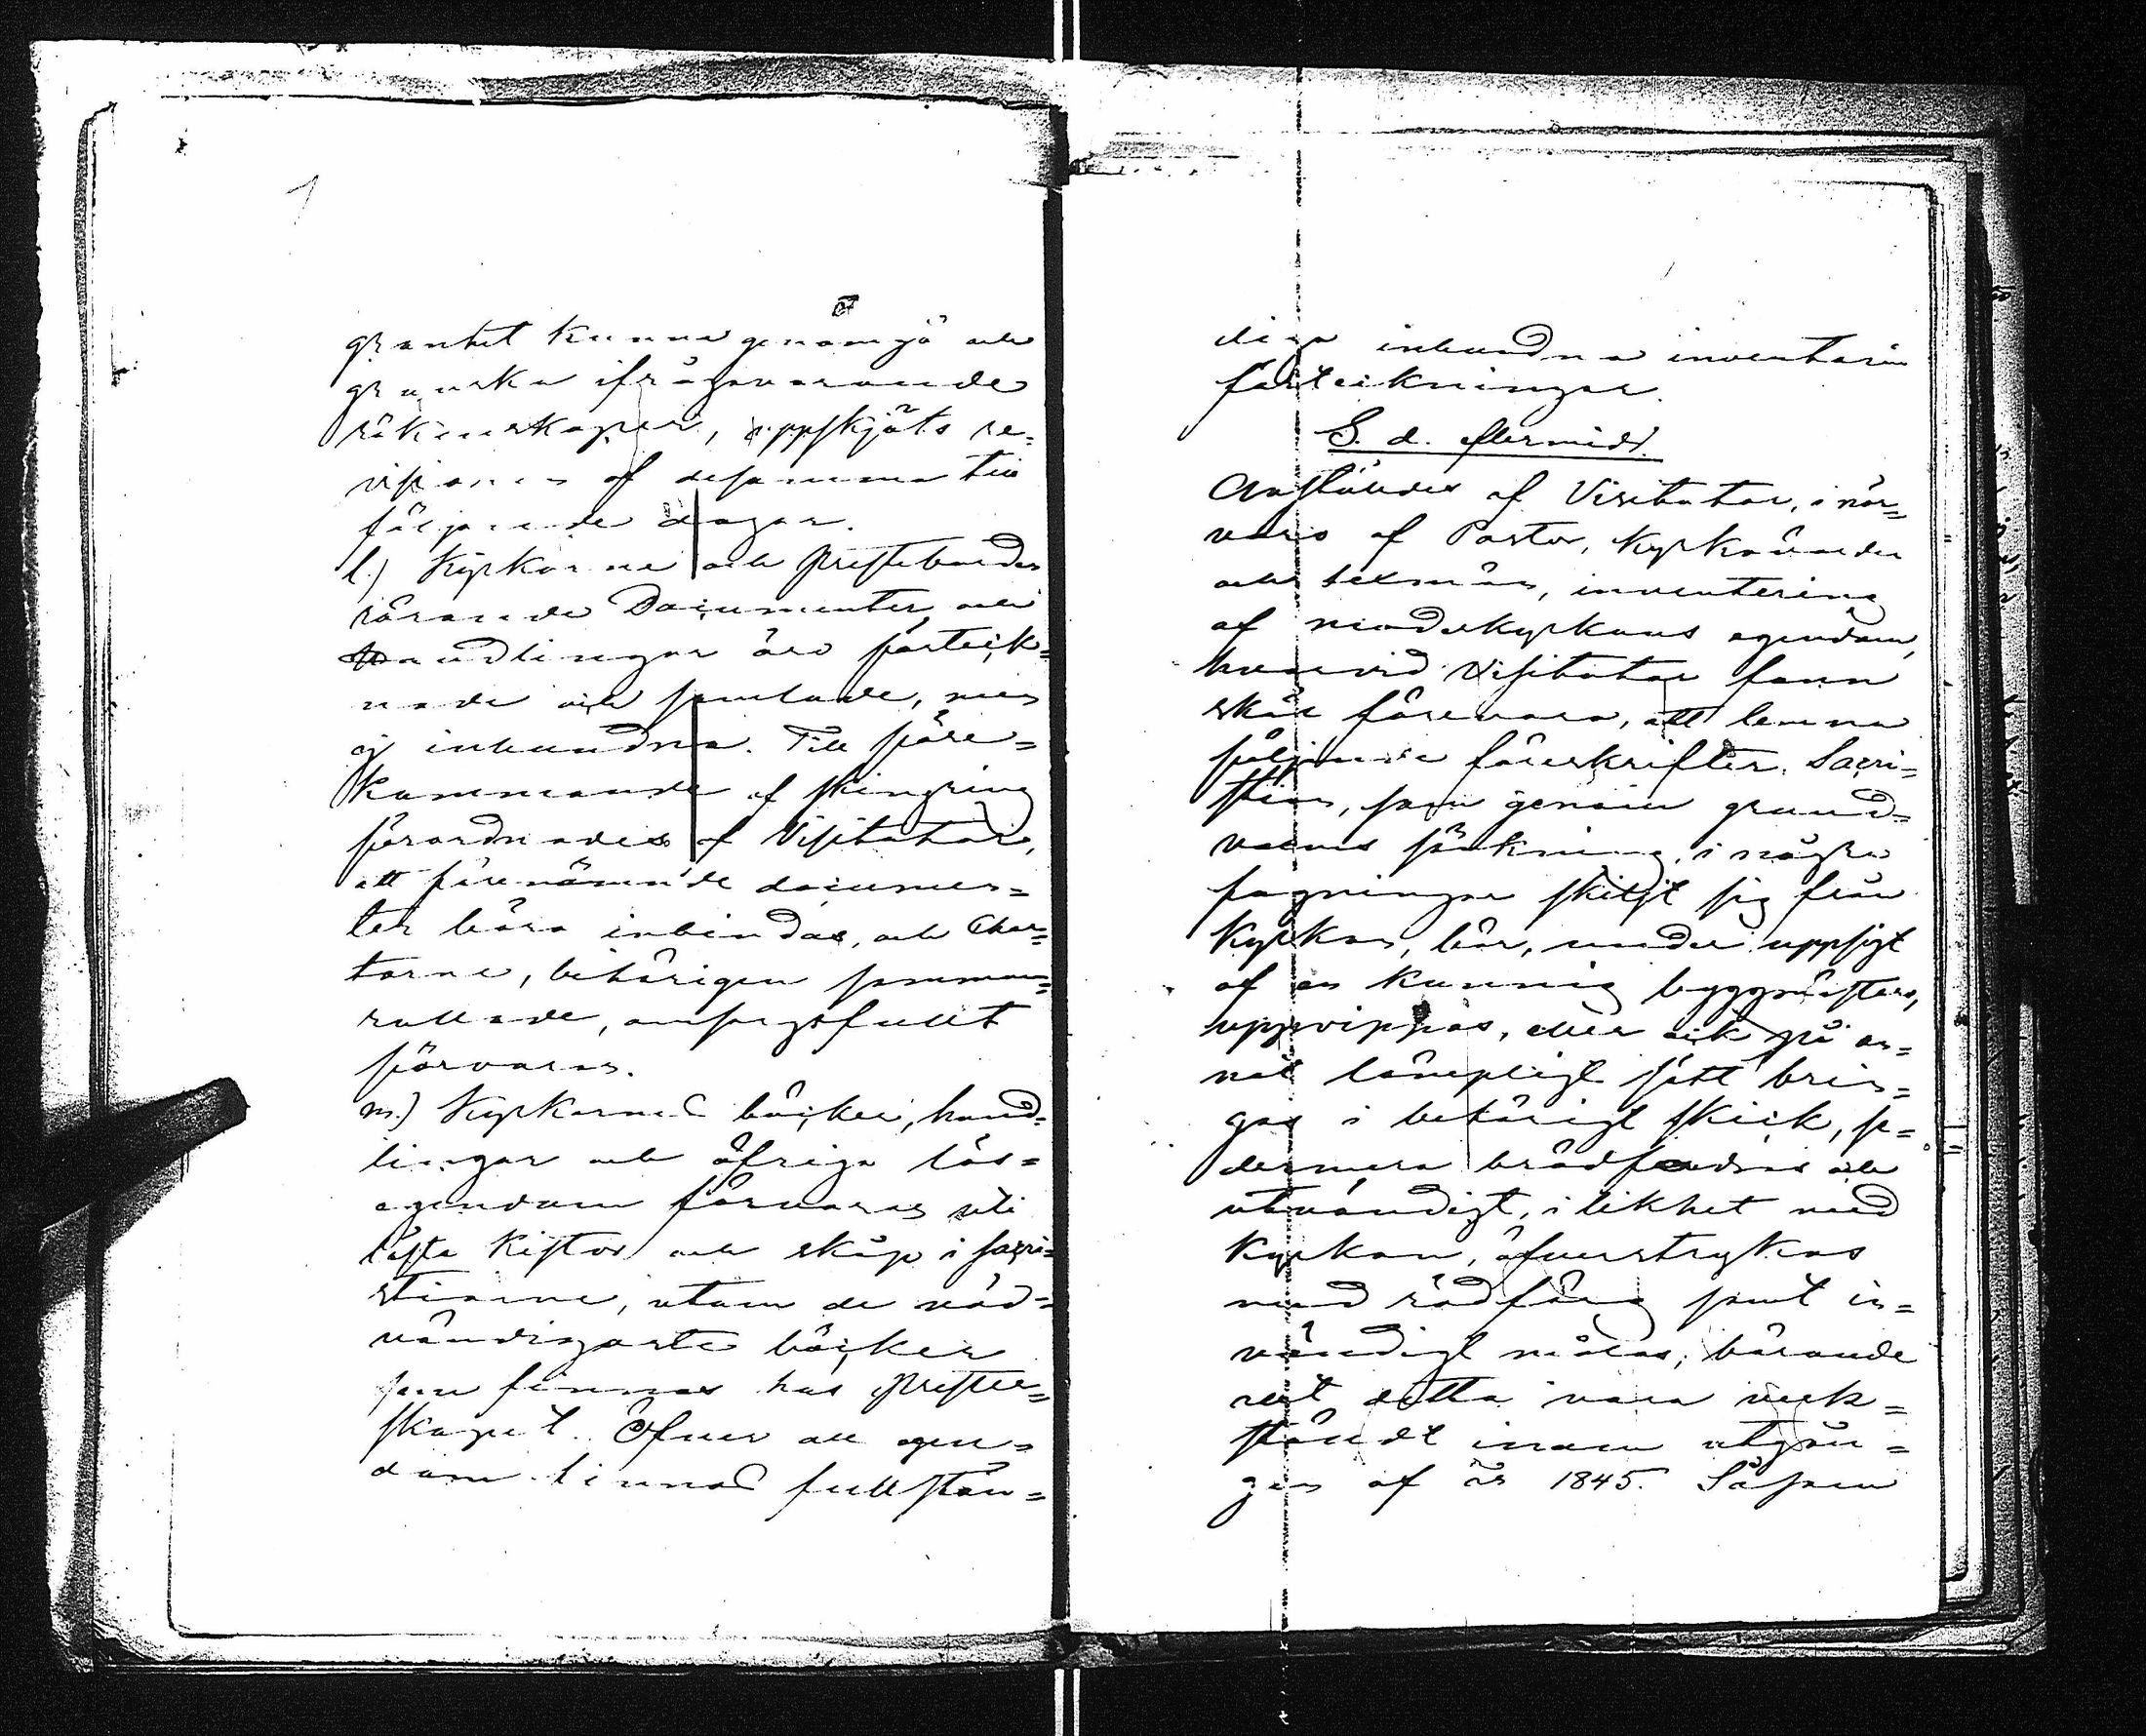 grant kunna genomgå och
granska ifrågavarande
räkenskaper, uppskjöts re=
visionen af desamma till
följande dagar.
l.) Kyrkorne och Prestebordet
rörande Documenter och
Handlingar äro förteck=
nade och samlade, men
ej inbundna. Till före=
kommande af skingring
förordnades af Visitator,
att förenämnde documen=
ter böra inbindas, och Char=
torne, behörigen samman=
rullade, omsorgsfullt
förvaras.
m.) Kyrkornas böcker, hand=
lingar och öfriga lös=
egendom förvaras uti
låsta kistor och skåp i sacri=
stiorne, utom de nöd=
vändigaste böcker
som finnas hos Prester=
skapet. Öfver all egen=
dom finnas fullstän=
diga inbundna inventarii
förteckningar.
S. d. eftermidd.
Anställdes af Visitator, i när=
varo af Pastor, Kyrkovärder
och sexmän, inventering
af moderkyrkans egendom,
hvarvid Visitator fann
skäl förevara, att lemna
följande föreskrifter. Sacri=
stian, som genom grund=
valens sänkning, i några
fogningar skiljt sig från
Kyrkan, bör, under uppsigt
af en kunnig byggmästare,
uppvippas, eller ock på an=
nat lämpligt sätt brin=
gas i behörigt skick, se=
dermera brädfordras och
utvändigt, i likhet med
Kyrkan, öfverstrykas
med rödfärg samt in=
vändigt målas; börande
allt detta vara verk=
stäldt inom utgån=
gen af år 1845. Såsom